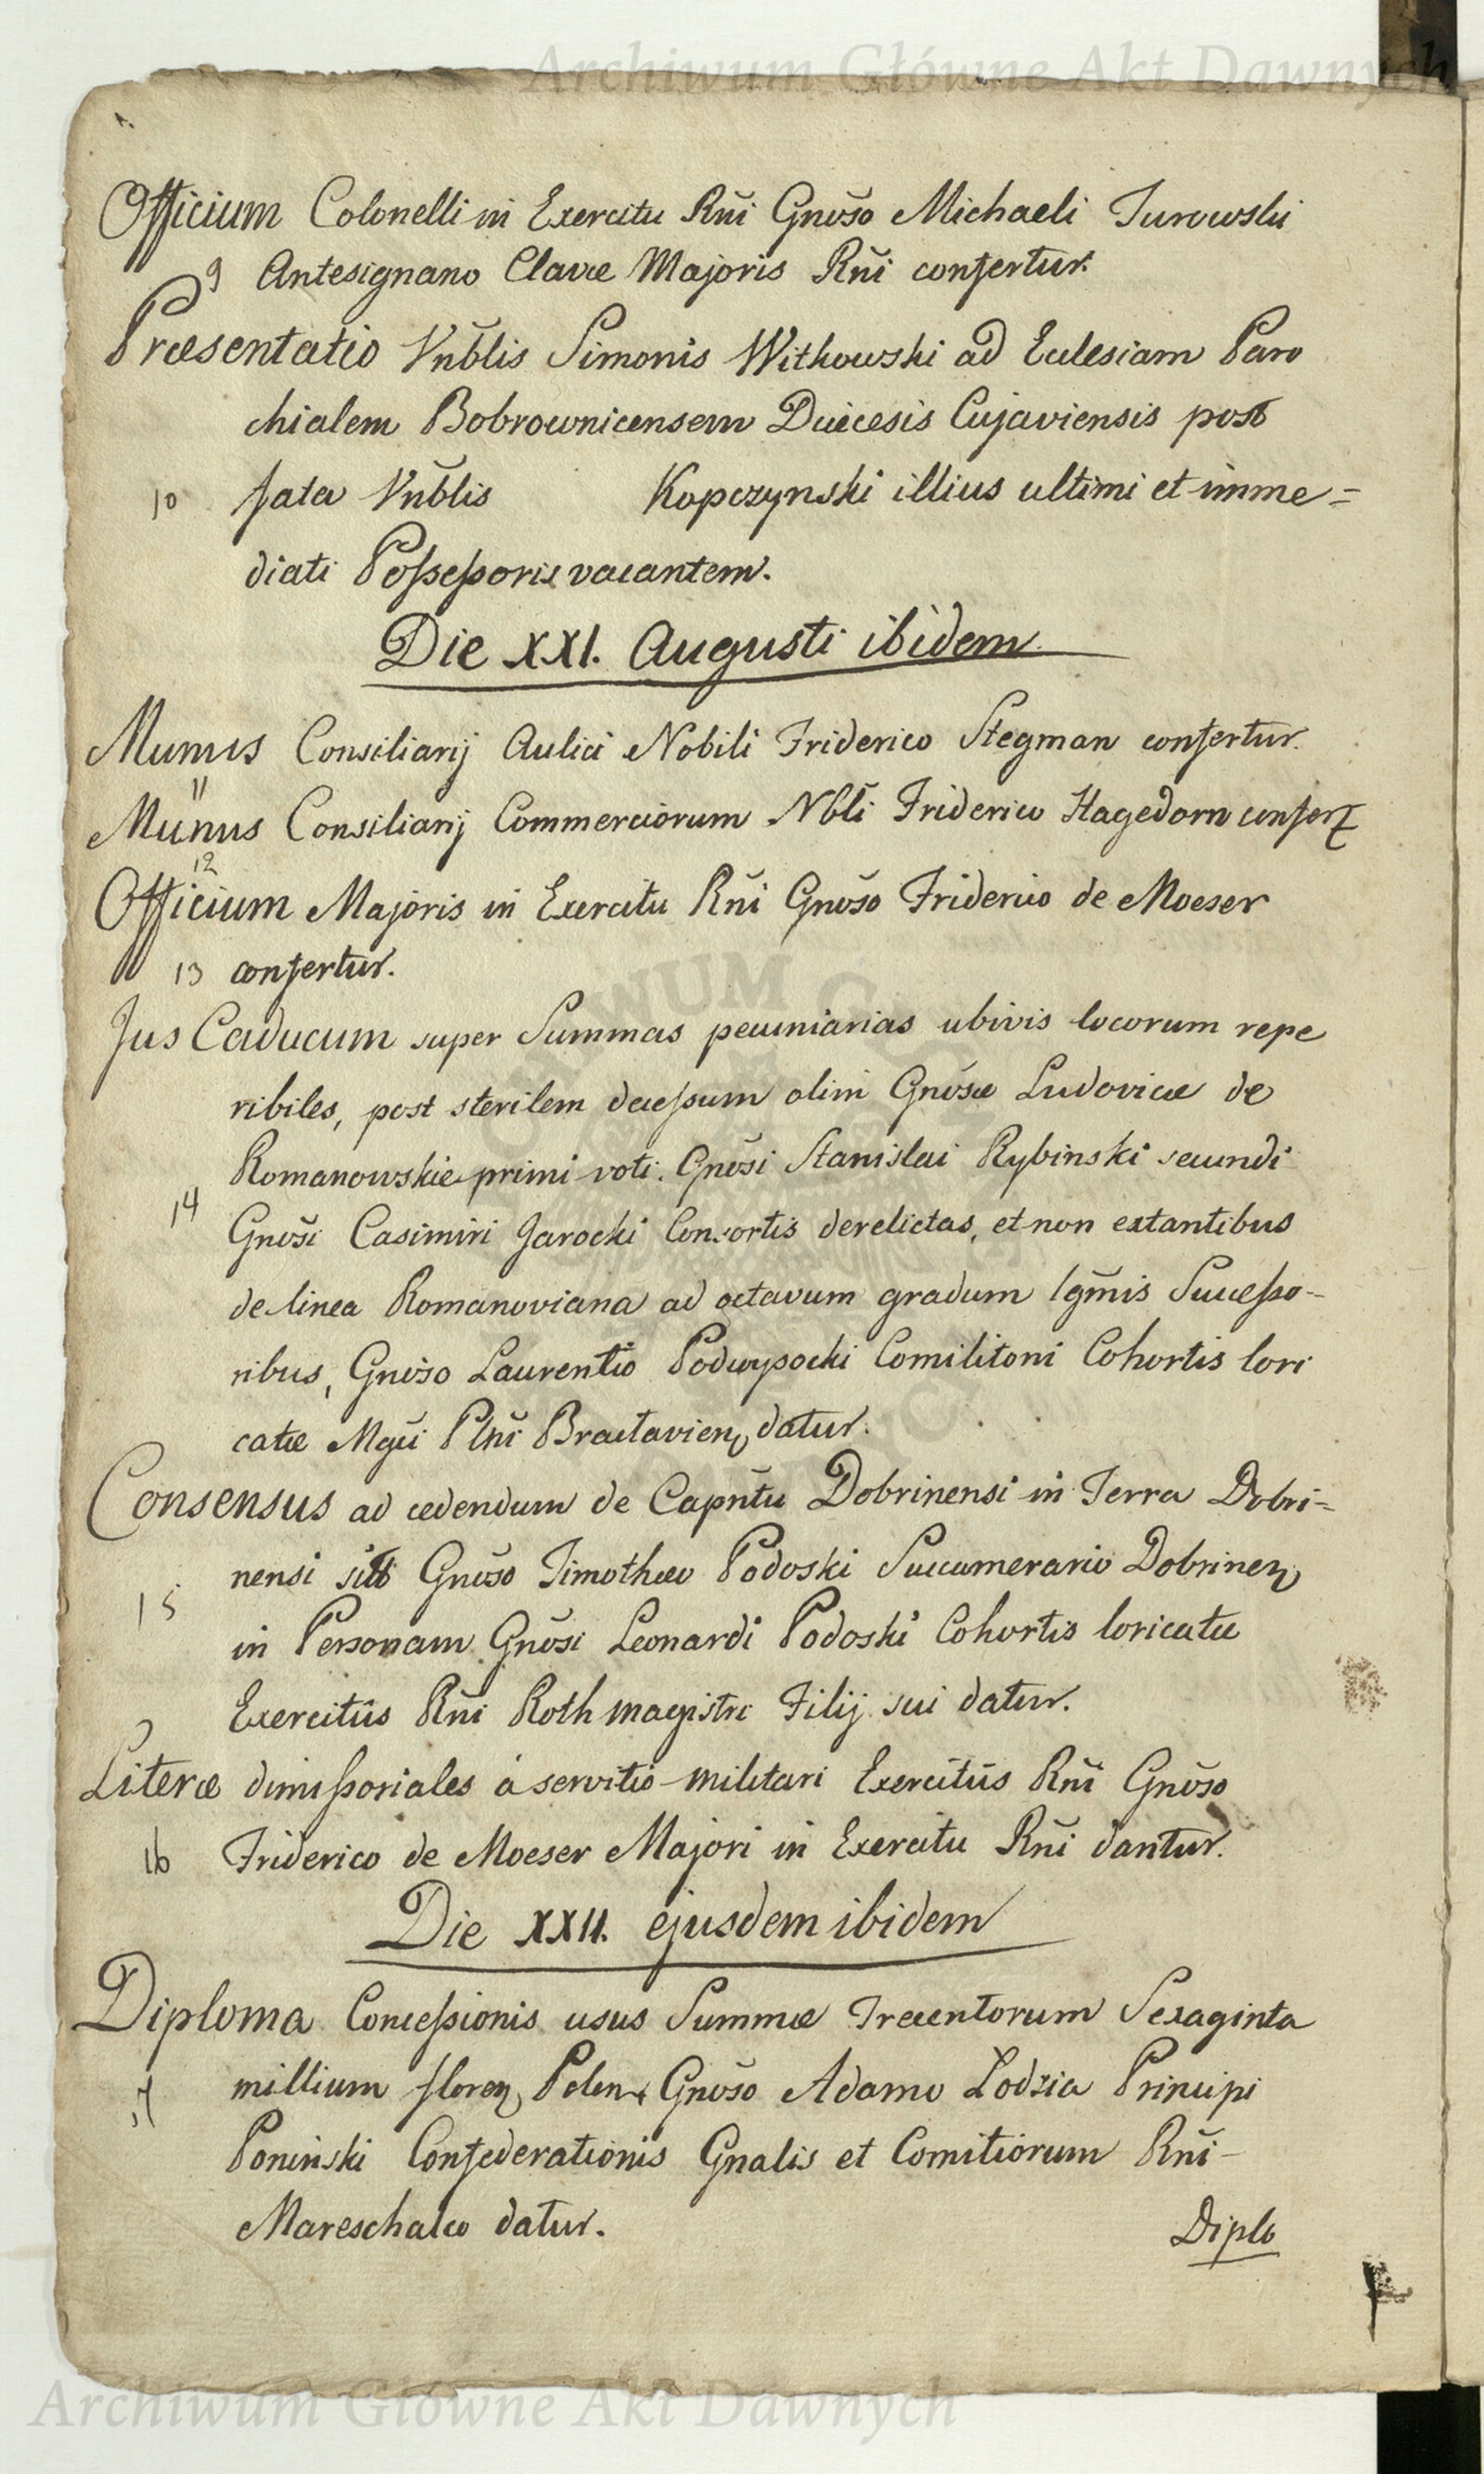 Archiwum Główne Akt Dawnych
Officium Colonelli in Exercitu Rñi Gnõso Michaeli Turowski
9 Antesignano Clavæ Majoris Rñi confertur.
Præsentatio Vnblis Simonis Witkowski ad Eclesiam Paro
chialem Bobrownicensem Diœcesis Cujaviensis post
10 fata Vnblis Kopczynski illius ultimi et imme=
diati Possessoris vacantem.
Die XXI. Augusti ibidem
Munus Consiliarij Aulici Nobili Friderico Stegman confertur.
11
Munus Consiliarij Commerciorum Nbli Friderico Hagedorn confert
12
Officium Majoris in Exercitu Rñi Gnõso Friderico de Moeser
13 confertur.
Jus Caducum super Summas pecuniarias ubivis locorum repe
ribiles, post sterilem decessum olim Gnõsæ Ludovicæ de
Romanowskie primi voti. Gnõsi Stanislai Rybinski secundi
14 Gnõsi Casimiri Jarocki Consortis derelictas, et non extantibus
de linea Romanoviana ad octavum gradum lgmis Successo-
ribus, Gnõso Laurentio Podwysocki Comilitoni Cohortis lori
catæ Mgñi Plñi Bractavien, datur.
Consensus ad cedendum de Capntu Dobrinensi in Terra Dobri=
nensi Gnõso Timothæo Podoski Succamerario Dobrinen,
15
in Personam Gnõsi Leonardi Podoski Cohortis loricatæ
Exercitûs Rñi Rothmagistri Filij sui datur.
Literæ dimissoriales à servitio militari Exercitûs Rñi Gnõso
16 Friderico de Moeser Majori in Exercitu Rñi dantur.
Die XXII. ejusdem ibidem
Diploma Concessionis usus Summæ Trecentorum Sexaginta
17 millium floren, Polon, Gnõso Adamo Łodzia Principi
Poninski Confederationis Gnalis et Comitiorum Rñi-
Mareschalco datur.
Diplo
Archiwum Główne Akt Dawnych